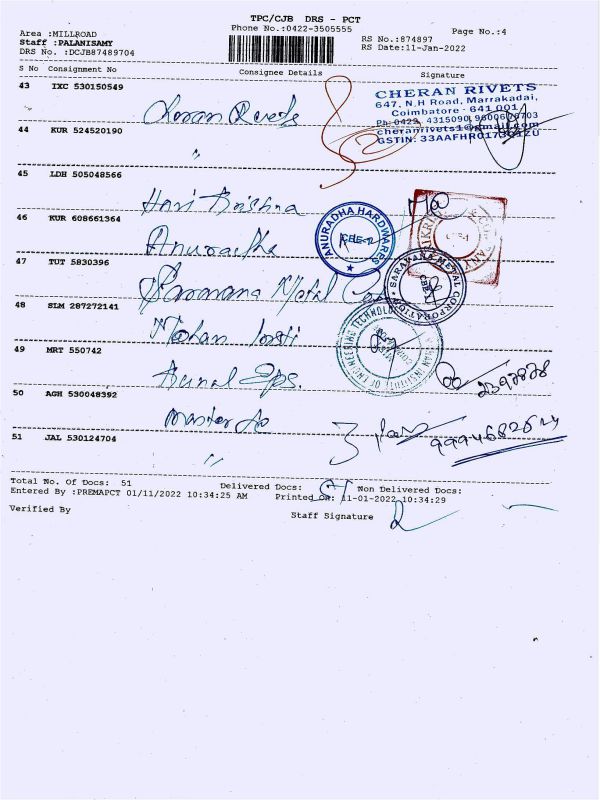 TPC/CJB DRS - PCT
Area :MILLROAD Phone No.:0422-3505555 Page No.:4
Staff :PALANISAMY RS No.:874897
DRS No. :DCJB87489704 RS Date:11-Jan-2022
S No Consignment No Consignee Details Signature
43 IXC 530150549
Cheran Rivets
CHERAN RIVETS
647, N.H Road, Marrakadai,
Coimbatore - 641 001
Ph: 0422
cheranrivets1@gmail.com
44 KUR 524520190
"
45 LDH 505048566
Hari Krishna
46 KUR 608661364
Anuradha
ANURADHA HARDWARES
CBE-12
47 TUT 5830396
Saravana Metal Co
SARAVANA METAL CORPORATION
48 SLM 287272141
Mohan
INSTITUTE OF ENGINEERING TECHNOLOGY
49 MRT 550742
50 AGH 530048392
Master
51 JAL 530124704
"
Total No. Of Docs: 51 Delivered Docs: Non Delivered Docs:
Entered By :PREMAPCT 01/11/2022 10:34:25 AM Printed On: 11-01-2022 10:34:29
Verified By Staff Signature